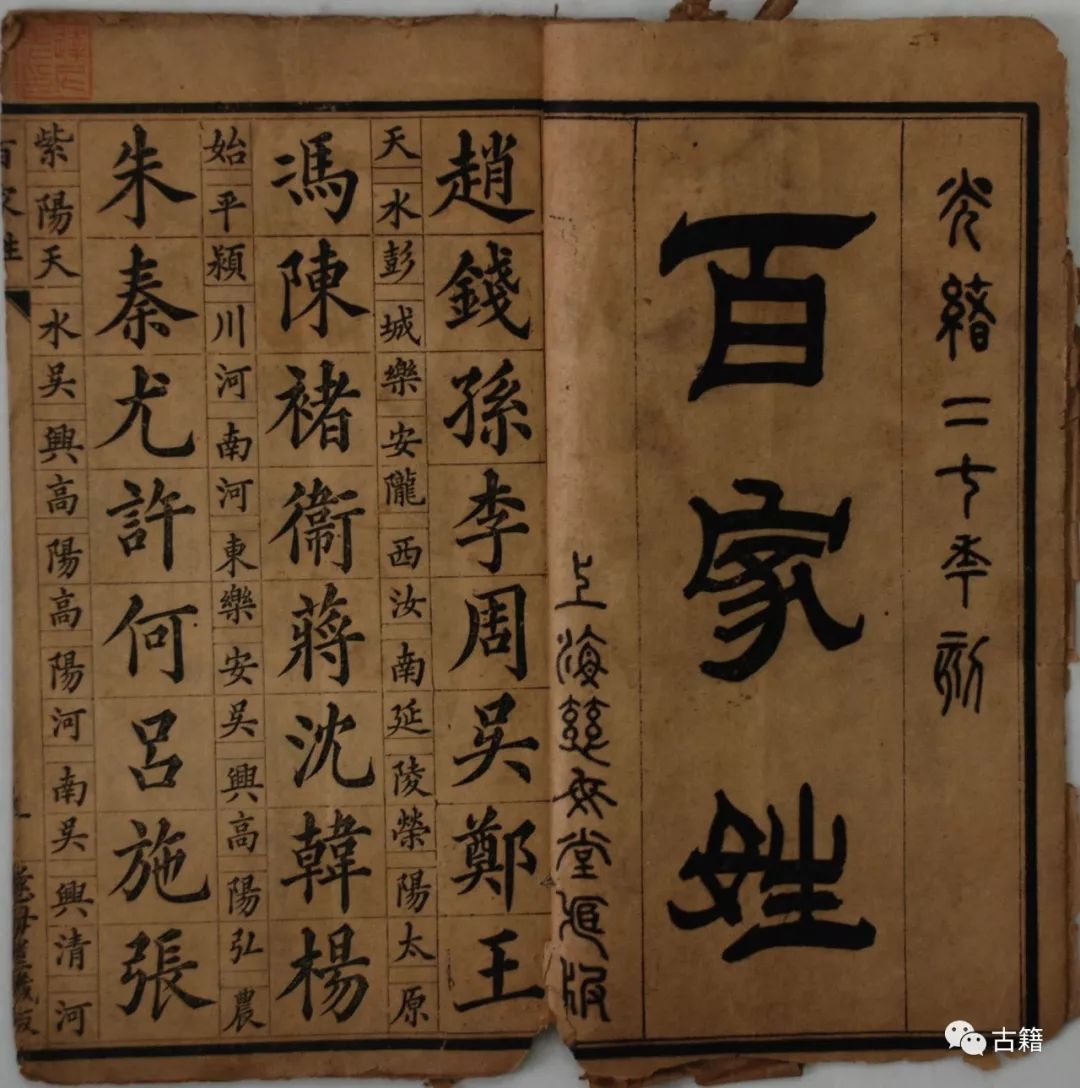 光緒二七年刻
百家姓
上海慈母堂藏版
趙錢孫李周吳鄭王
天水彭城樂安隴西汝南延陵榮陽太原
馮陳褚衞蔣沈韓楊
始平潁川河南河東樂安吳興高陽弘農
朱秦尤許何呂施張
紫陽天水吳興高陽高陽河南吳興清河
百家姓
慈母堂藏版
古籍